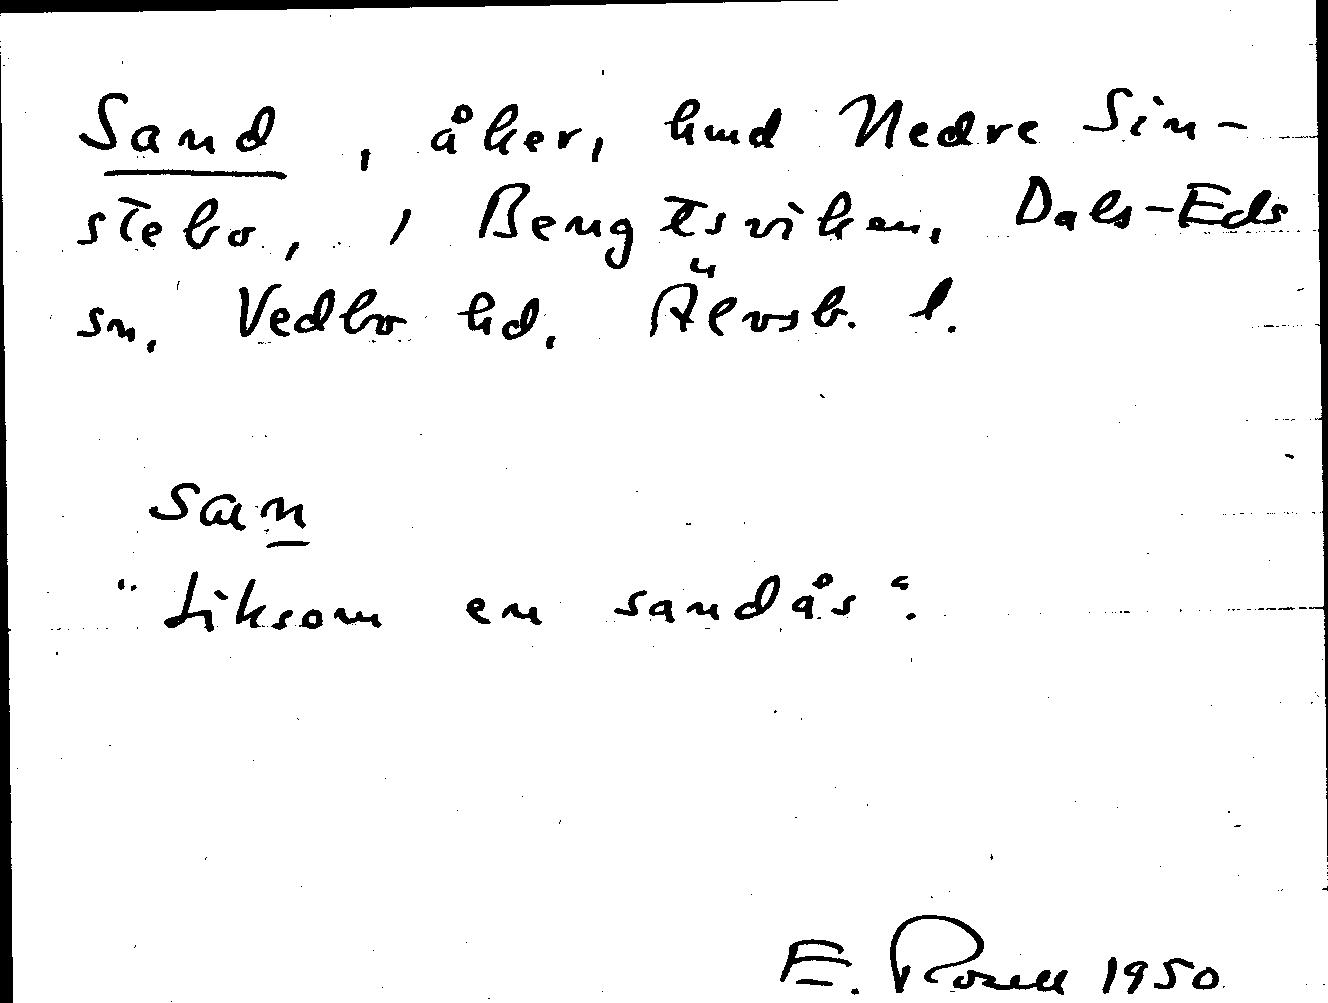 Sand, åker, hmd Nedre Sin-
stebo, / Bengtsviken, Dals-Eds
sn, Vedbo hd. Älvsb. l.
san
"Liksom en sandås".
E. Rosell 1950